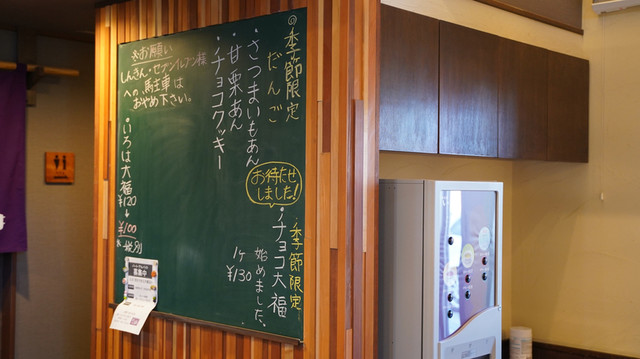 ◎季節限定
だんご
・さつまいもあん
・甘栗あん
・チョコクッキー
お待たせ
しました!
季節限定
・チョコ大福
始めました。
1ヶ
¥130
※お願い
しんきん・セブンイレブン様
への、馬主車は
おやめ下さい。
・いろは大福
¥120
↓
¥100
募集中